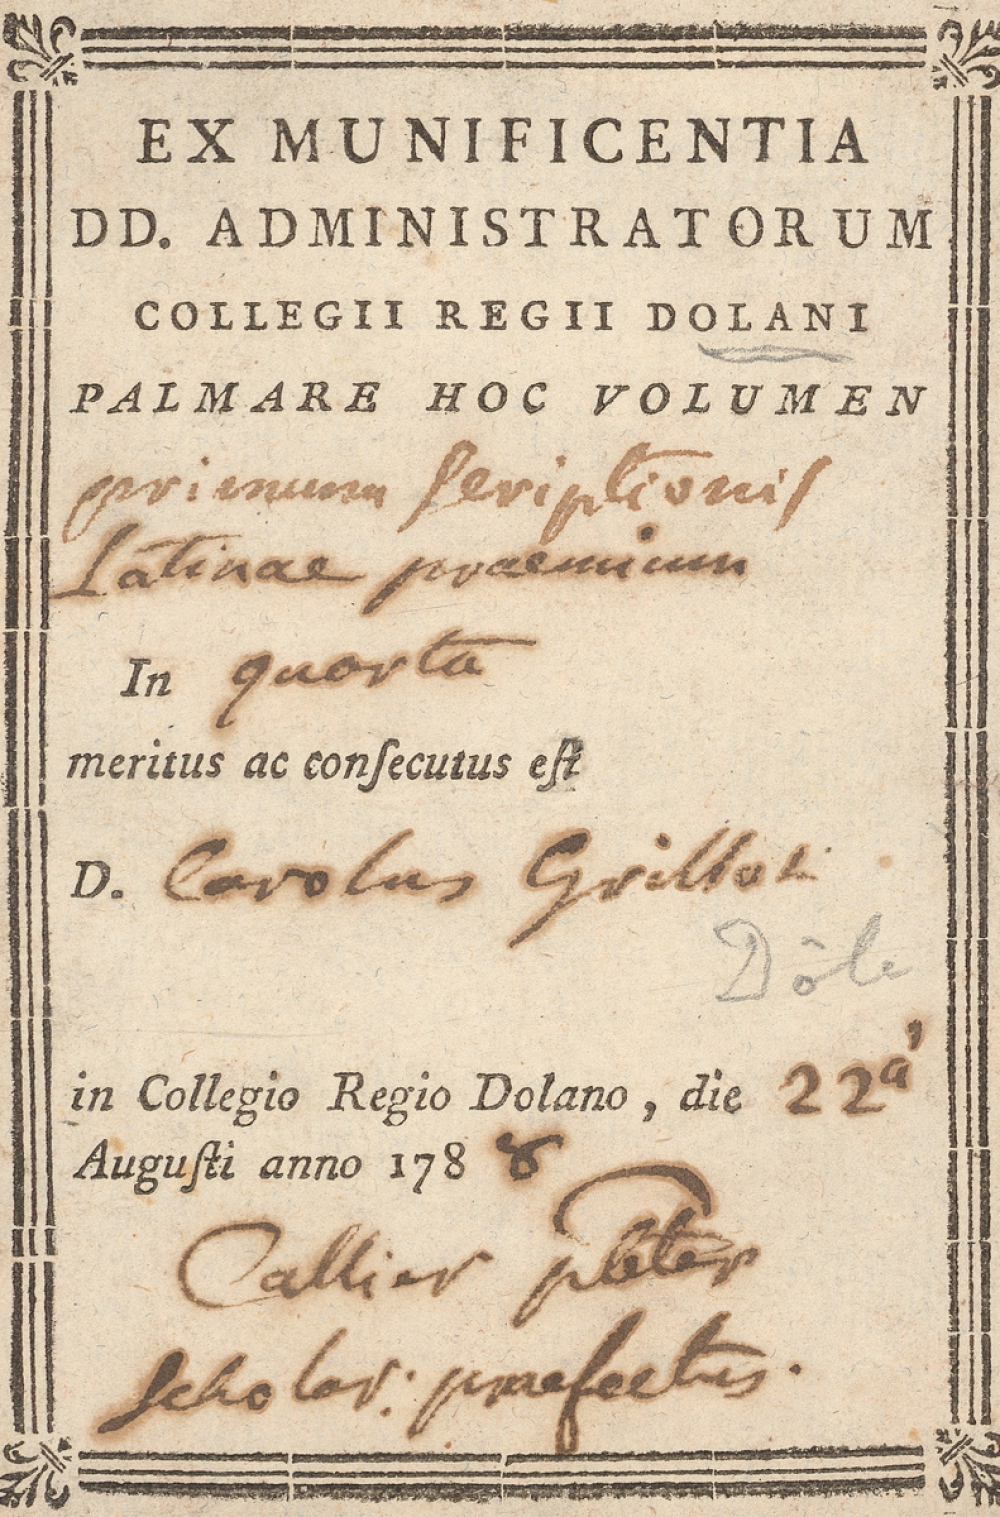 EX MUNIFICENTIA
DD. ADMINISTRATORUM
COLLEGII REGII DOLANI
PALMARE HOC VOLUMEN
primum scriptionis
Latinae praemium
In quarta
meritus ac conſecutus eſt
D. Carolus Grillot
Dôle
in Collegio Regio Dolano, die 22ª
Auguſti anno 1788
Callier pbter
scholar: praefectus.